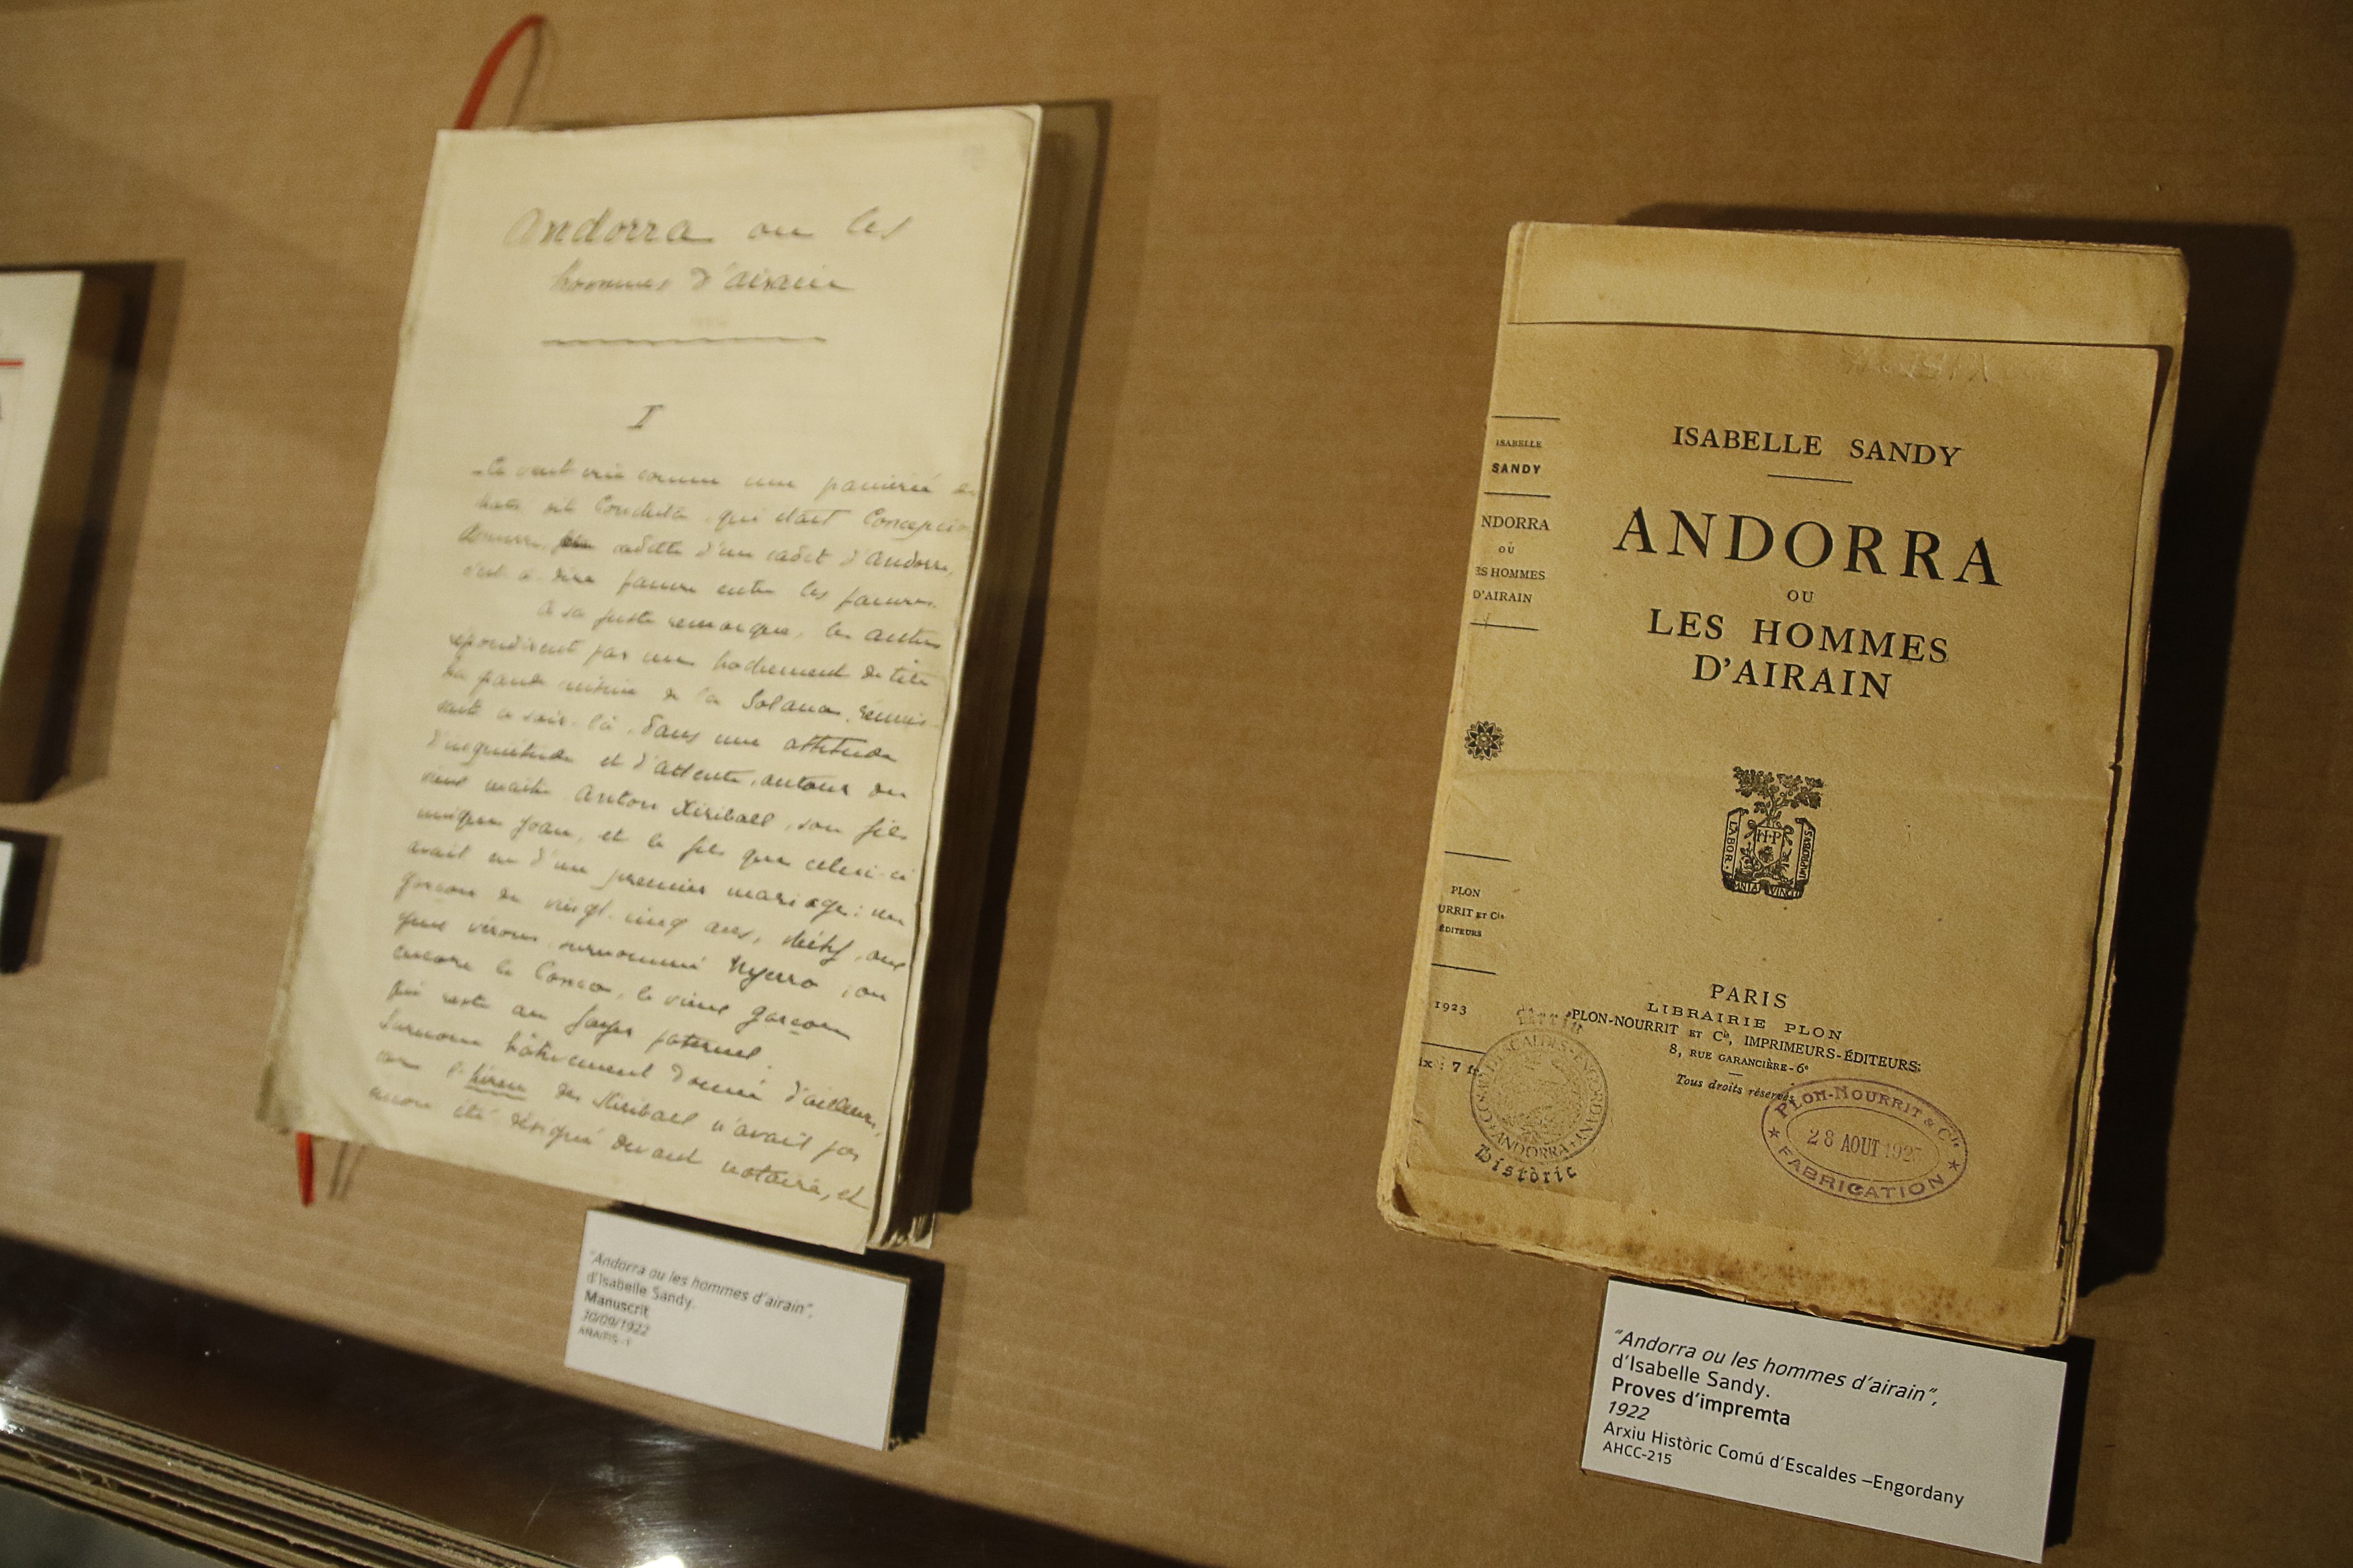 Andorra ou les
hommes d'airain
I
Ce vent crie comme une
dit Conchita, qui était
cadette d'un cadet d'Andorre,
c'est à dire pauvre entre les pauvres.
A sa juste remarque, les autres
répondirent par un hochement de tête
de la Solana,
soir-là, dans une attitude
d'inquiétude et d'attente, autour du
vieux maître Anton Xiriball, son fils
unique Joan, et le fils que celui-ci
avait eu d'un premier mariage: un
garçon de vingt-cinq ans, chétif, aux
yeux vairons, surnommé Nyerro, ou
encore le Conco, le vieux garçon
qui reste au foyer paternel.
Surnom hâtivement donné d'ailleurs,
car l'hereu des Xiriball n'avait pas
encore été désigné devant notaire, et
"Andorra ou les hommes d'airain",
d'Isabelle Sandy.
Manuscrit
30/09/1922
ISABELLE
SANDY
NDORRA
OU
ES HOMMES
D'AIRAIN
PLON
URRIT ET Cie
ÉDITEURS
1923
ix : 7 fr
ISABELLE SANDY
ANDORRA
OU
LES HOMMES
D'AIRAIN
LABOR
H·P
IMPROBUS
OMNIA VINCIT
PARIS
LIBRAIRIE PLON
PLON-NOURRIT ET Cie, IMPRIMEURS-ÉDITEURS
8, RUE GARANCIÈRE - 6e
Tous droits réservés
COMÚ D'ESCALDES-ENGORDANY
ANDORRA
Històric
PLON-NOURRIT & Cie
28 AOUT 192
FABRICATION
"Andorra ou les hommes d'airain",
d'Isabelle Sandy.
Proves d'impremta
1922
Arxiu Històric Comú d'Escaldes –Engordany
AHCC-215